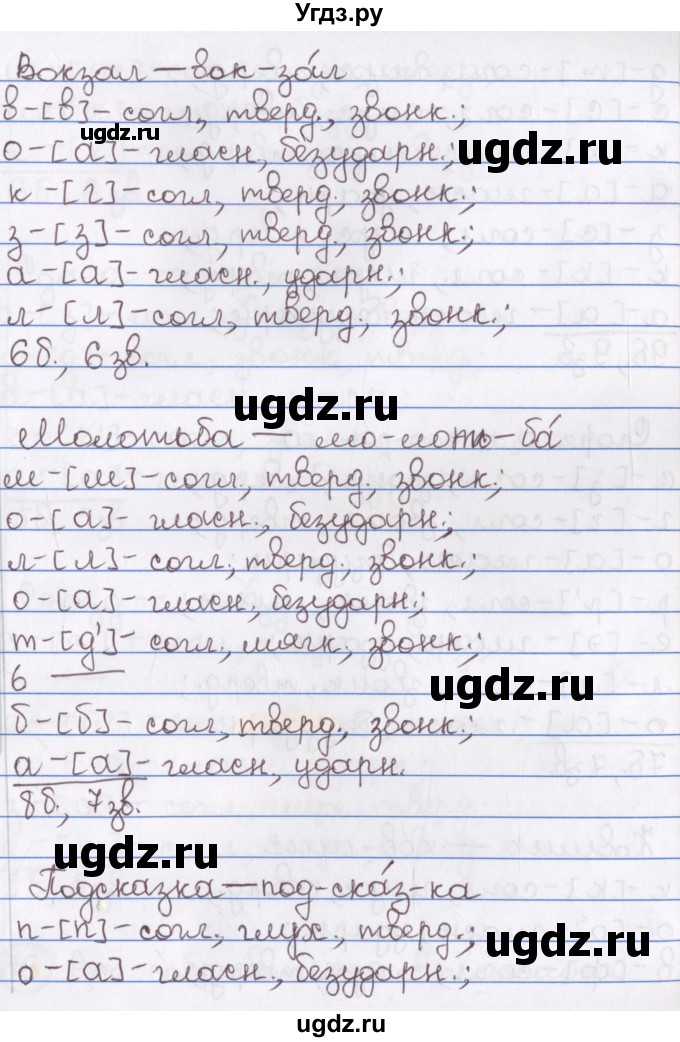 Угдз.ру
Вокзал — вок-за́л
в-[в]- согл, тверд., звонк.;
ugdz.ru
о-[а]- гласн., безударн.;
ugdz.ru
к-[г]- согл, тверд., звонк.;
з-[з]- согл., тверд., звонк.;
а-[а]- гласн., ударн.;
л-[л]- согл, тверд, звонк.;
6б., 6зв.
ugdz.ru
Молотоба — мо-лоть-ба́
м-[м]- согл, тверд, звонк.;
о-[а]- гласн., безударн.;
ugdz.ru
л-[л]- согл., тверд., звонк.;
о-[а]- гласн, безударн.;
т-[д']- согл., мягк., звонк.;
ugdz.ru
б ——
б-[б]- согл, тверд., звонк.;
а-[а]- гласн., ударн.
8б., 7зв.
ugdz.ru
Подсказка — под-ска́з-ка
п-[п]- согл, глух., тверд.;
ugdz.ru
о-[а]- гласн, безударн.;
ugdz.ru